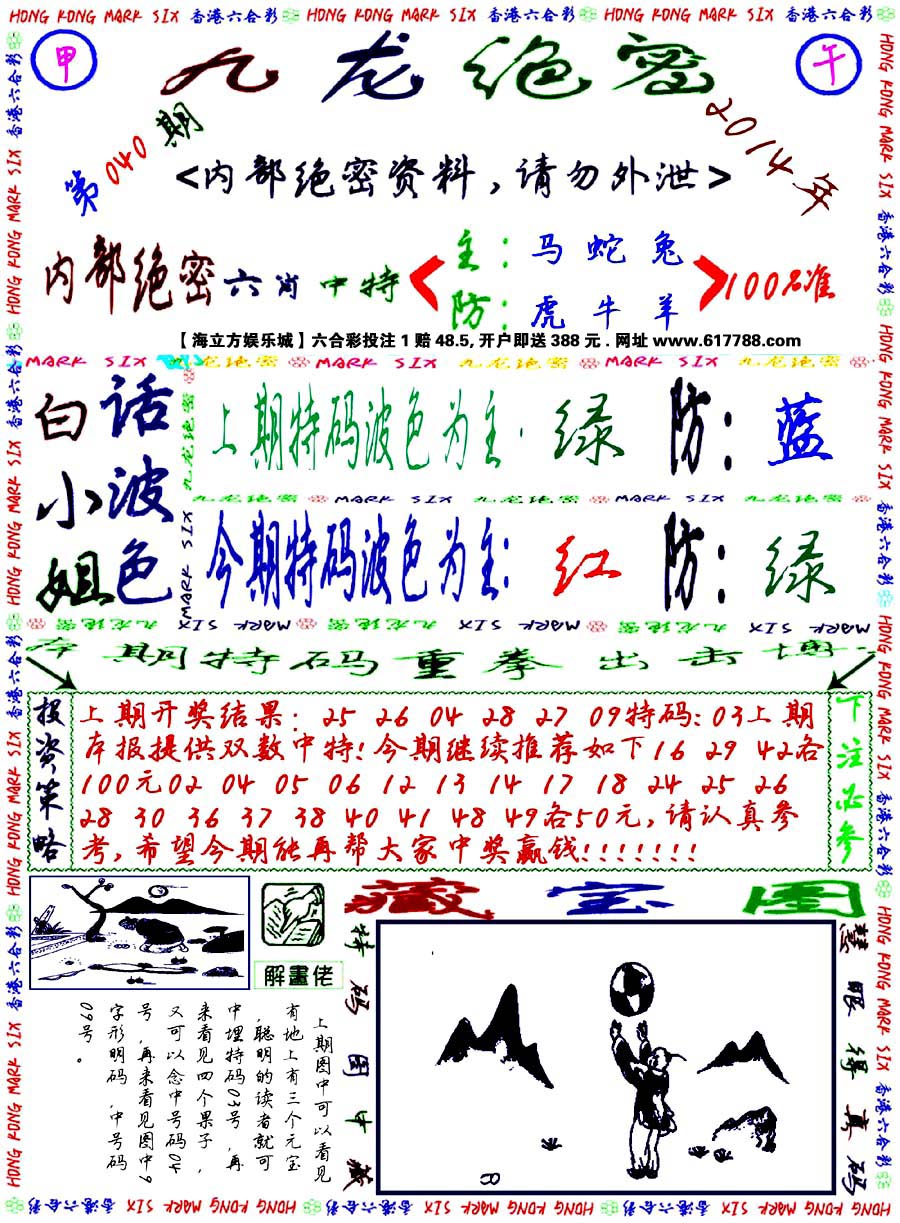 HONG KONG MARK SIX 香港六合彩 HONG KONG MARK SIX 香港六合彩 HONG KONG MARK SIX 香港六合彩
甲
九龙绝密
午
第040期
2014年
<内部绝密资料,请勿外泄>
内部绝密六肖中特
主:马蛇兔
防:虎牛羊
100%准
【海立方娱乐城】六合彩投注1赔48.5,开户即送388元.网址www.617788.com
MARK SIX 九龙绝密 MARK SIX 九龙绝密 MARK SIX 九龙绝密
白小姐
话波色
上期特码波色为主:绿 防:蓝
九龙绝密 MARK SIX 九龙绝密 MARK SIX 九龙绝密
今期特码波色为主:红 防:绿
MARK SIX 九龙绝密
本期特码重拳出击博
投资策略
上期开奖结果:25 26 04 28 27 09特码:03上期
本报提供双数中特!今期继续推荐如下16 29 42各
100元02 04 05 06 12 13 14 17 18 24 25 26
28 30 36 37 38 40 41 48 49各50元,请认真参
考,希望今期能再帮大家中奖赢钱!!!!!!!
下注必参
解畫佬
藏宝图
上期图中可以看见
有地上有三个元宝
,聪明的读者就可
中埋特码03号,再
来看见四个果子,
又可以念中号码04
号,再来看见图中9
字形明码,中号码
09号。
特码图中藏
慧眼得真码
HONG KONG MARK SIX 香港六合彩